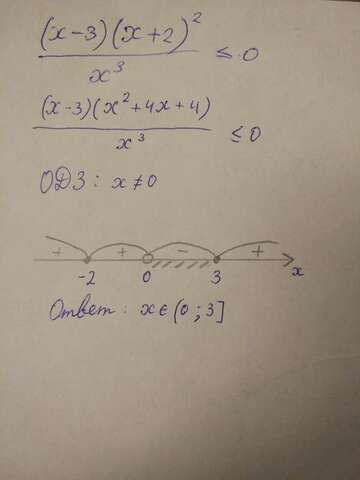 (x-3)(x+2)²
x³ ≤ 0
(x-3)(x²+4x+4)
x³ ≤ 0
ОДЗ: x ≠ 0
+ + - +
-2 0 3 x
Ответ: x ∈ (0; 3]